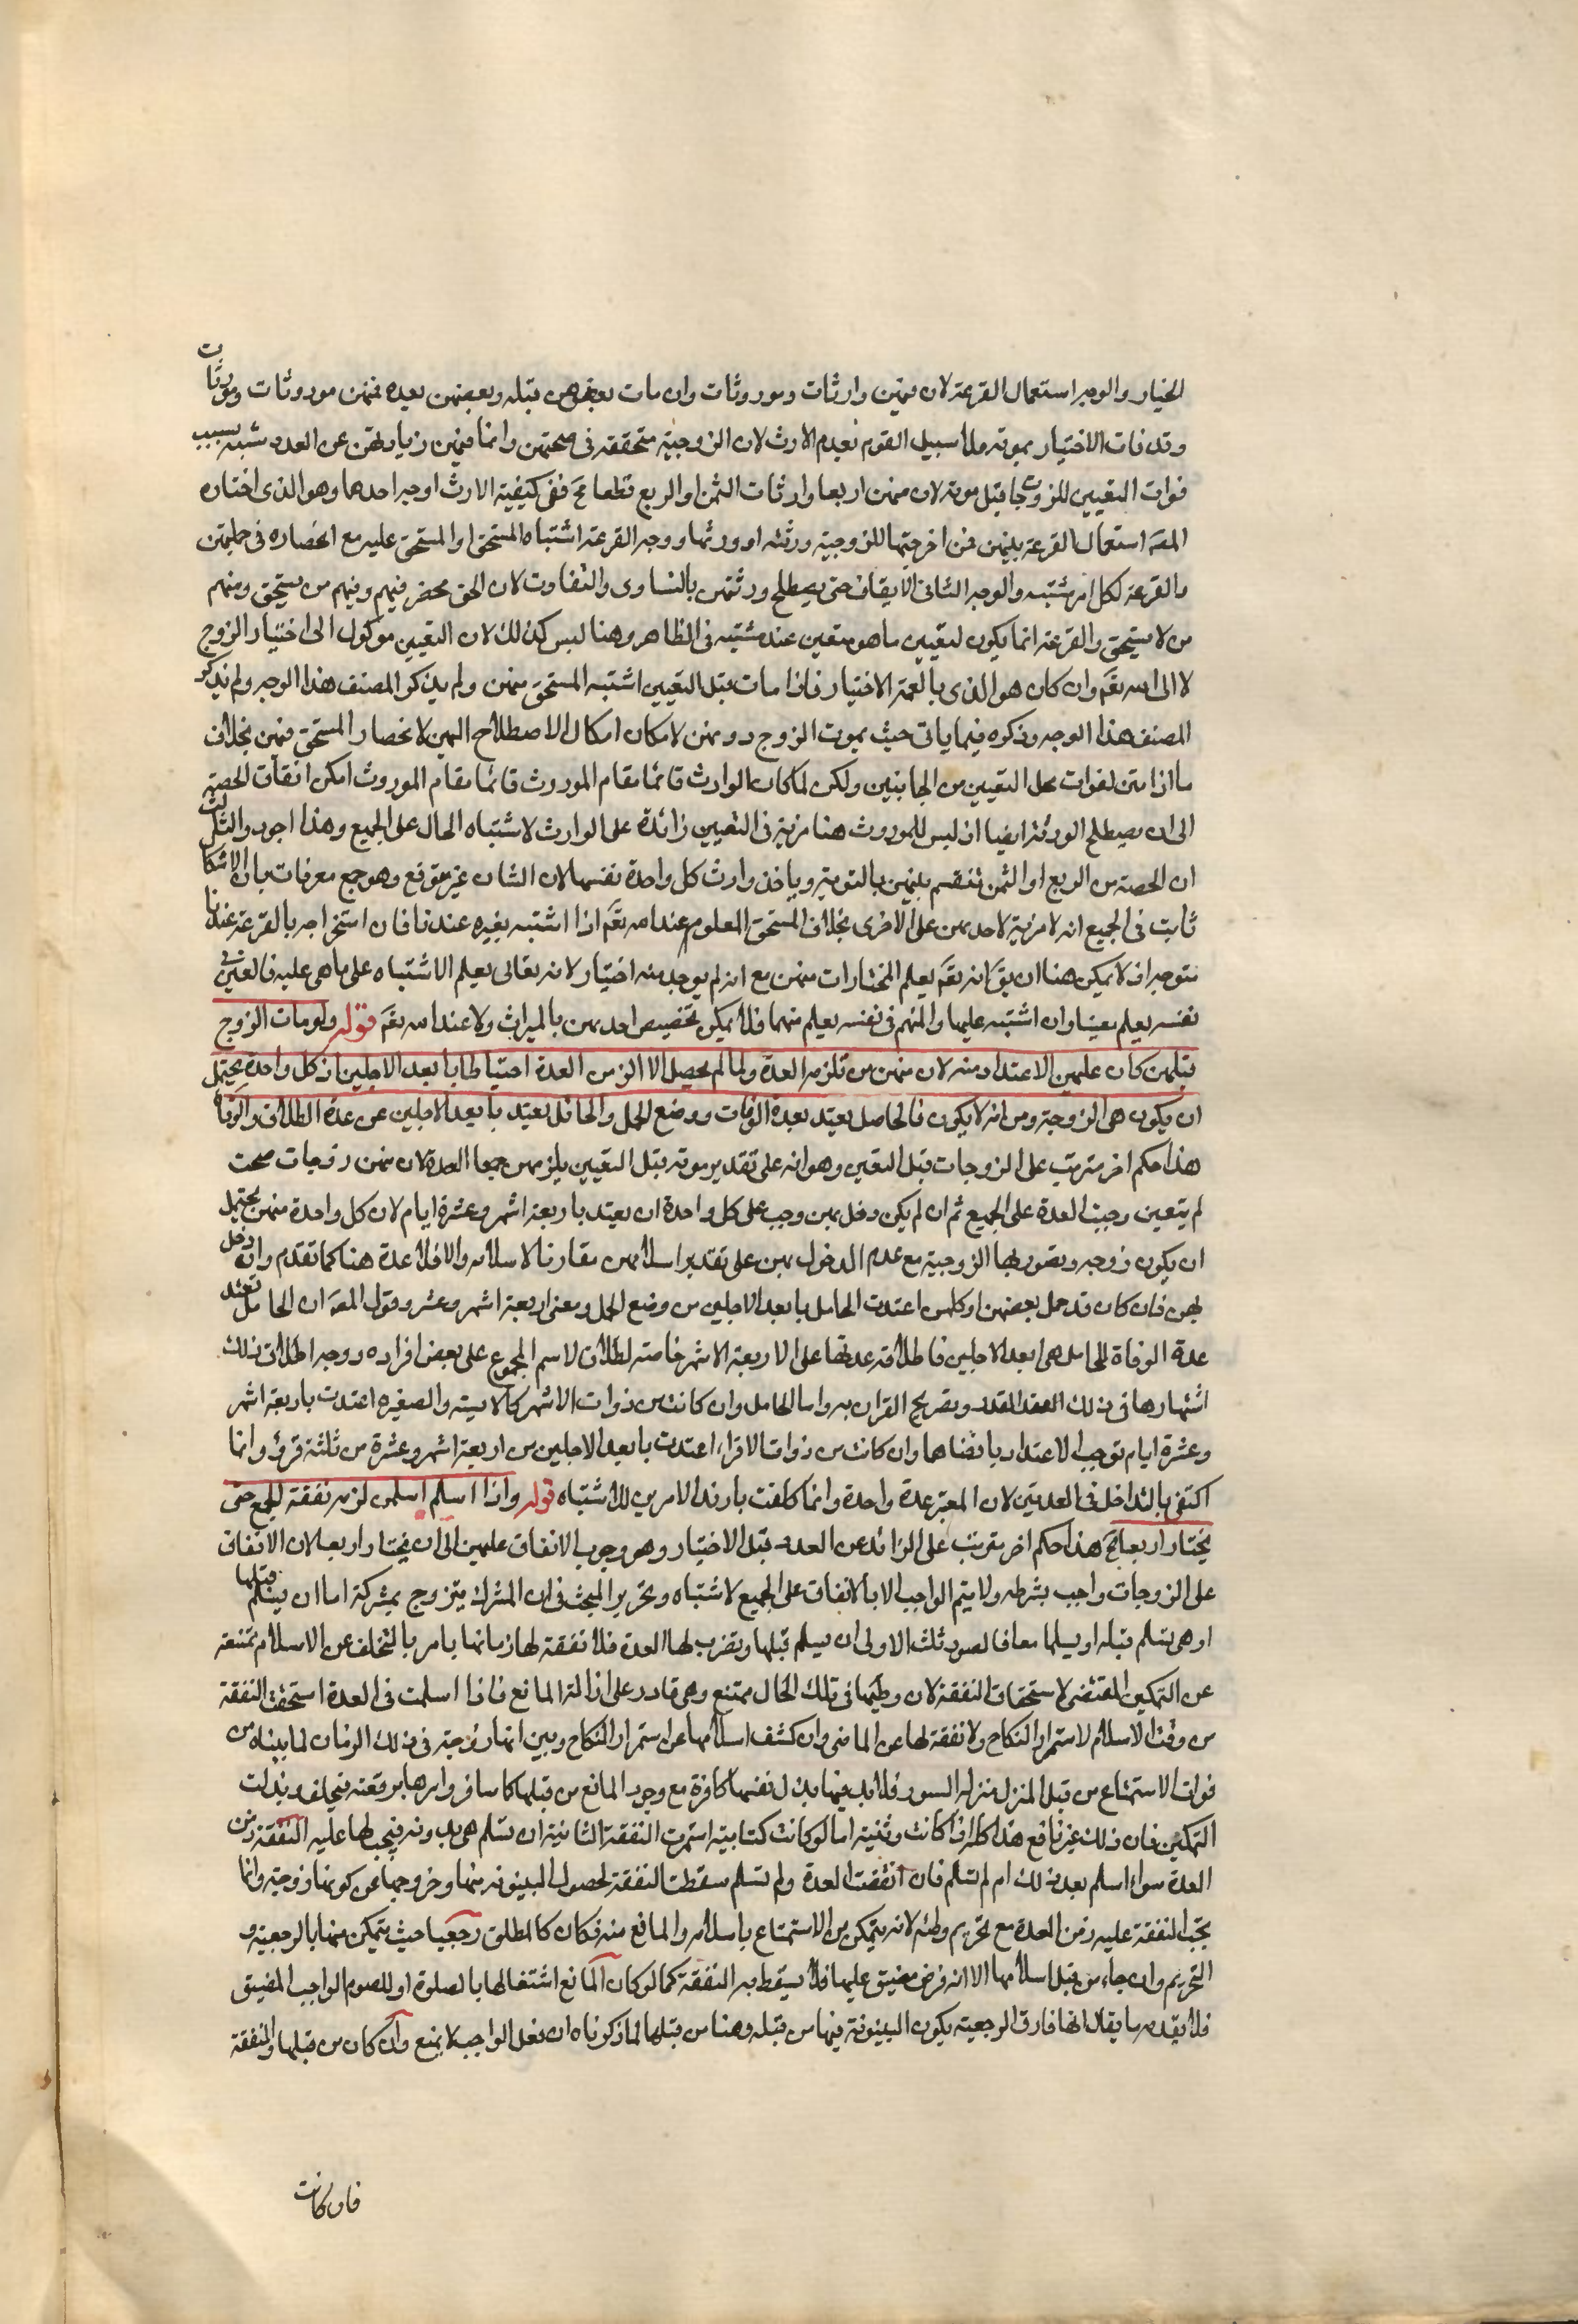 الخيار والوجه استعمال القرعة لان فيهن وارثات وموروثات وان مات بعضهن قبله وبعضهن بعده فمنهن موروثات ووارثات
وقد فات الاختيار بموته ولا سبيل القوم بعدم الارث لان الزوجية متحققة في صحتهن وانما فيهن زيادتهن عن العدد شبه بسبب
فوات التعيين للزوجات قبل موته لان منهن اربعا وارثات الثمن او الربع قطعا فح ففي كيفية الارث اوجه احدها وهو الذي اختاره
المصه استعمال القرعة بينهن فمن اخرجتها للزوجية ورثته او ورثها ووجه القرعة اشتباه المستحق او المستحق عليه مع انحصاره في جملتهن
والقرعة لكل امر مشتبه والوجه الثاني الايقاف حتى يصطلح ورثتهن بالتساوى والتفاوت لان الحق محصر فيهم وفيهم من يستحق ومنهم
من لا يستحق والقرعة انما يكون لتعيين ما هو متعين عنده مشتبه في الظاهر وهنا ليس كذلك لان التعيين موكول الى اختيار الزوج
لا الى الله تعم وان كان هو الذي بالغه الاختيار فاذا مات قبل التعيين اشتبه المستحق منهن ولم يذكر المصنف هذا الوجه ولم يذكر
المصنف هذا الوجه وذكره فيما ياتي حيث يموت الزوج دونهن لامكان الاصطلاح الهن لانحصار المستحق فيهن بخلاف
ما اذا متن لفوات محل التعيين من الجانبين ولكن لما كان الوارث قائما مقام الموروث قائما مقام الموروث امكن انقاف الحصة
الى ان يصطلح الورثة ايضا اذ ليس للموروث هنا مزية في التعيين زائدة على الوارث لاشتباه الحال على الجميع وهذا اجود والثالث
ان الحصة من الربع او الثمن تنقسم بينهن بالتوية وياخذ وارث كل واحدة نفسها لان الشان غير متوقع وهو جمع معرفات بان الاشكال
ثابت في الجميع انه لا مزية لاحديهن على الاخرى بخلاف المستحق المعلوم عند الله تعم اذا اشتبه بغيره عندنا فان استخراجه بالقرعة عندنا
متوجه اذ لا يمكن هنا ان يق انه تعم يعلم المختارات منهن مع انه لم يوجد منه اختيار لانه تعالى يعلم الاشتباه على ما هي عليه فالعين في
نفسه يعلم بعينها وان اشتبه علينا والمبهم في نفسه يعلم مبهما فلا يمكن تخصيص احديهن بالميراث ولا عند الله تعم قوله ولو مات الزوج
قبلهن كان عليهن الاعتداد منه لان منهن من تلزمه العدة ولما لم يحصل الا الزمن العدة احتياطا بابعد الاجلين اذ كل واحدة يحتمل
ان يكون هي الزوجة ومن انه لا يكون فالحاصل يعتد بعدة الوفات ووضع الحمل والحائل يعتد بابعد الاجلين من عدة الطلاق والوفاة
هذا حكم اخر مترتب على الزوجات قبل التعين وهو انه على تقدير موته قبل التعيين يلزمهن جمعا العدة لان منهن زوجات صحت
لم يتعين وجبت العدة على الجميع ثم ان لم يكن دخل بهن وجب على كل واحدة ان يعتد باربعة اشهر وعشرة ايام لان كل واحدة منهن يحتمل
ان يكون زوجه وبقصور بها الزوجية مع عدم الدخول بهن على تقدير اسلامهن مقارنا لاسلامه والا فلا عدة هنا كما تقدم وان دخل
بهن فان كان قد حمل بعضهن او كلهن اعتدت الحامل بابعد الاجلين من وضع الحمل ومعنى اربعة اشهر وعشر وقول المصه ان الحامل تعتد
عدة الوفاة للحامل هي ابعد الاجلين فاطلاقه عدتها على الاربعة الاشهر خاصة لطلاق لاسم المجموع على بعض افراده ووجه اطلاق ذلك
اشتهارها في ذلك العقد المقدر وتصريح القران به واما الحامل وان كانت من ذوات الاشهر كالايسة والصغيرة اعتدت باربعة اشهر
وعشرة ايام توجب الاعتداد باقضاها وان كانت من ذوات الاقراء اعتدت بابعد الاجلين من اربعة اشهر وعشرة من ثلثة قروء وانما
اكتفى بالتداخل في العدتين لان المعتبر عدة واحدة وانما كلفت بازيد الامرين للاشتباه قوله واذا اسلم اسلمن لزمه نفقة للجميع حتى
يختار اربعا فح هذا حكم اخر مترتب على الزائد عن العدد قبل الاختيار وهو وجوب الانفاق عليهن الى ان يختار اربعا لان الانفاق
على الزوجات واجب بشرطه ولا يتم الواجب الا بالانفاق على الجميع لاشتباه وتحرير البحث في ان المشرك يتزوج بمشركة اما ان يسلم قبلها
او هى تسلم قبله او يسلما معا فالصور ثلثة الاولى ان يسلم قبلها ويضرب لها العدة فلا نفقة لها زمانها بامر بالتخلف عن الاسلام ممتنعة
عن التمكين المقتضي لاستحقاق النفقة لان وطيها في تلك الحال ممتنع وهى قادر على ازالة المانع فاذا اسلمت في العدة استحقت النفقة
من وقت الاسلام لاستمرار النكاح ولا نفقة لها عن الماضي وان كشف اسلامها عن استمرار النكاح وبين انها زوجته في ذلك الزمان لما بيناه من
فوات الاستمتاع من قبل المنزل منزله السور فلا بد فيها بذل نفسها كافرة مع وجود المانع من قبلها كما سافر وامرها برقعته فيخلف وبذلت
التمكين فان ذلك غير نافع هذا كله اذا كانت وثنية اما لو كانت كتابية استمرت النفقة الثانية ان تسلم هى بدونه فيجب لها عليه النفقة زمن
العدة سواء اسلم بعد ذلك ام لم تسلم فان انقضت العدة ولم تسلم سقطت النفقة لحصول البينونة منها وخروجها عن كونها زوجية وانما
تجب النفقة عليه زمن العدة مع تحريم وطئه لانه يتمكن من الاستمتاع باسلامه والمانع منه فكان كالمطلق رجعيا حيث يتمكن منها بالرجعية و
التحريم وان جاء من قبل اسلامها الا انه فرض مضيق عليها فلا يسقط به النفقة كما لو كان المانع اشتغالها بالصلوة او للصوم الواجب المضيق
فلا يقدمه ما يقال انها فارق الرجعية يكون البينونة فيها من قبله وهنا من قبلها لما ذكرناه ان فعل الواجب لا يمنع وان كان من قبلها والنفقة
فان كانت